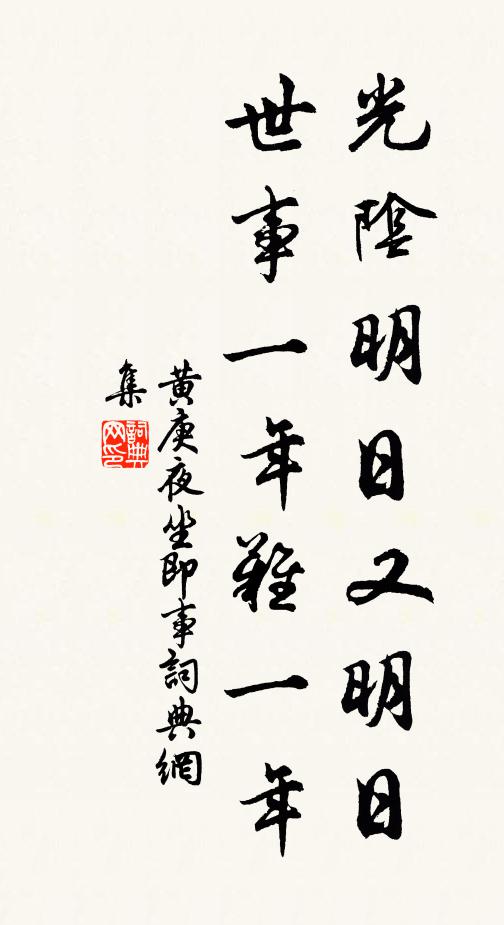 光陰明日又明日
世事一年難一年
黄庚夜坐即事詞典網
集
詞典
网印